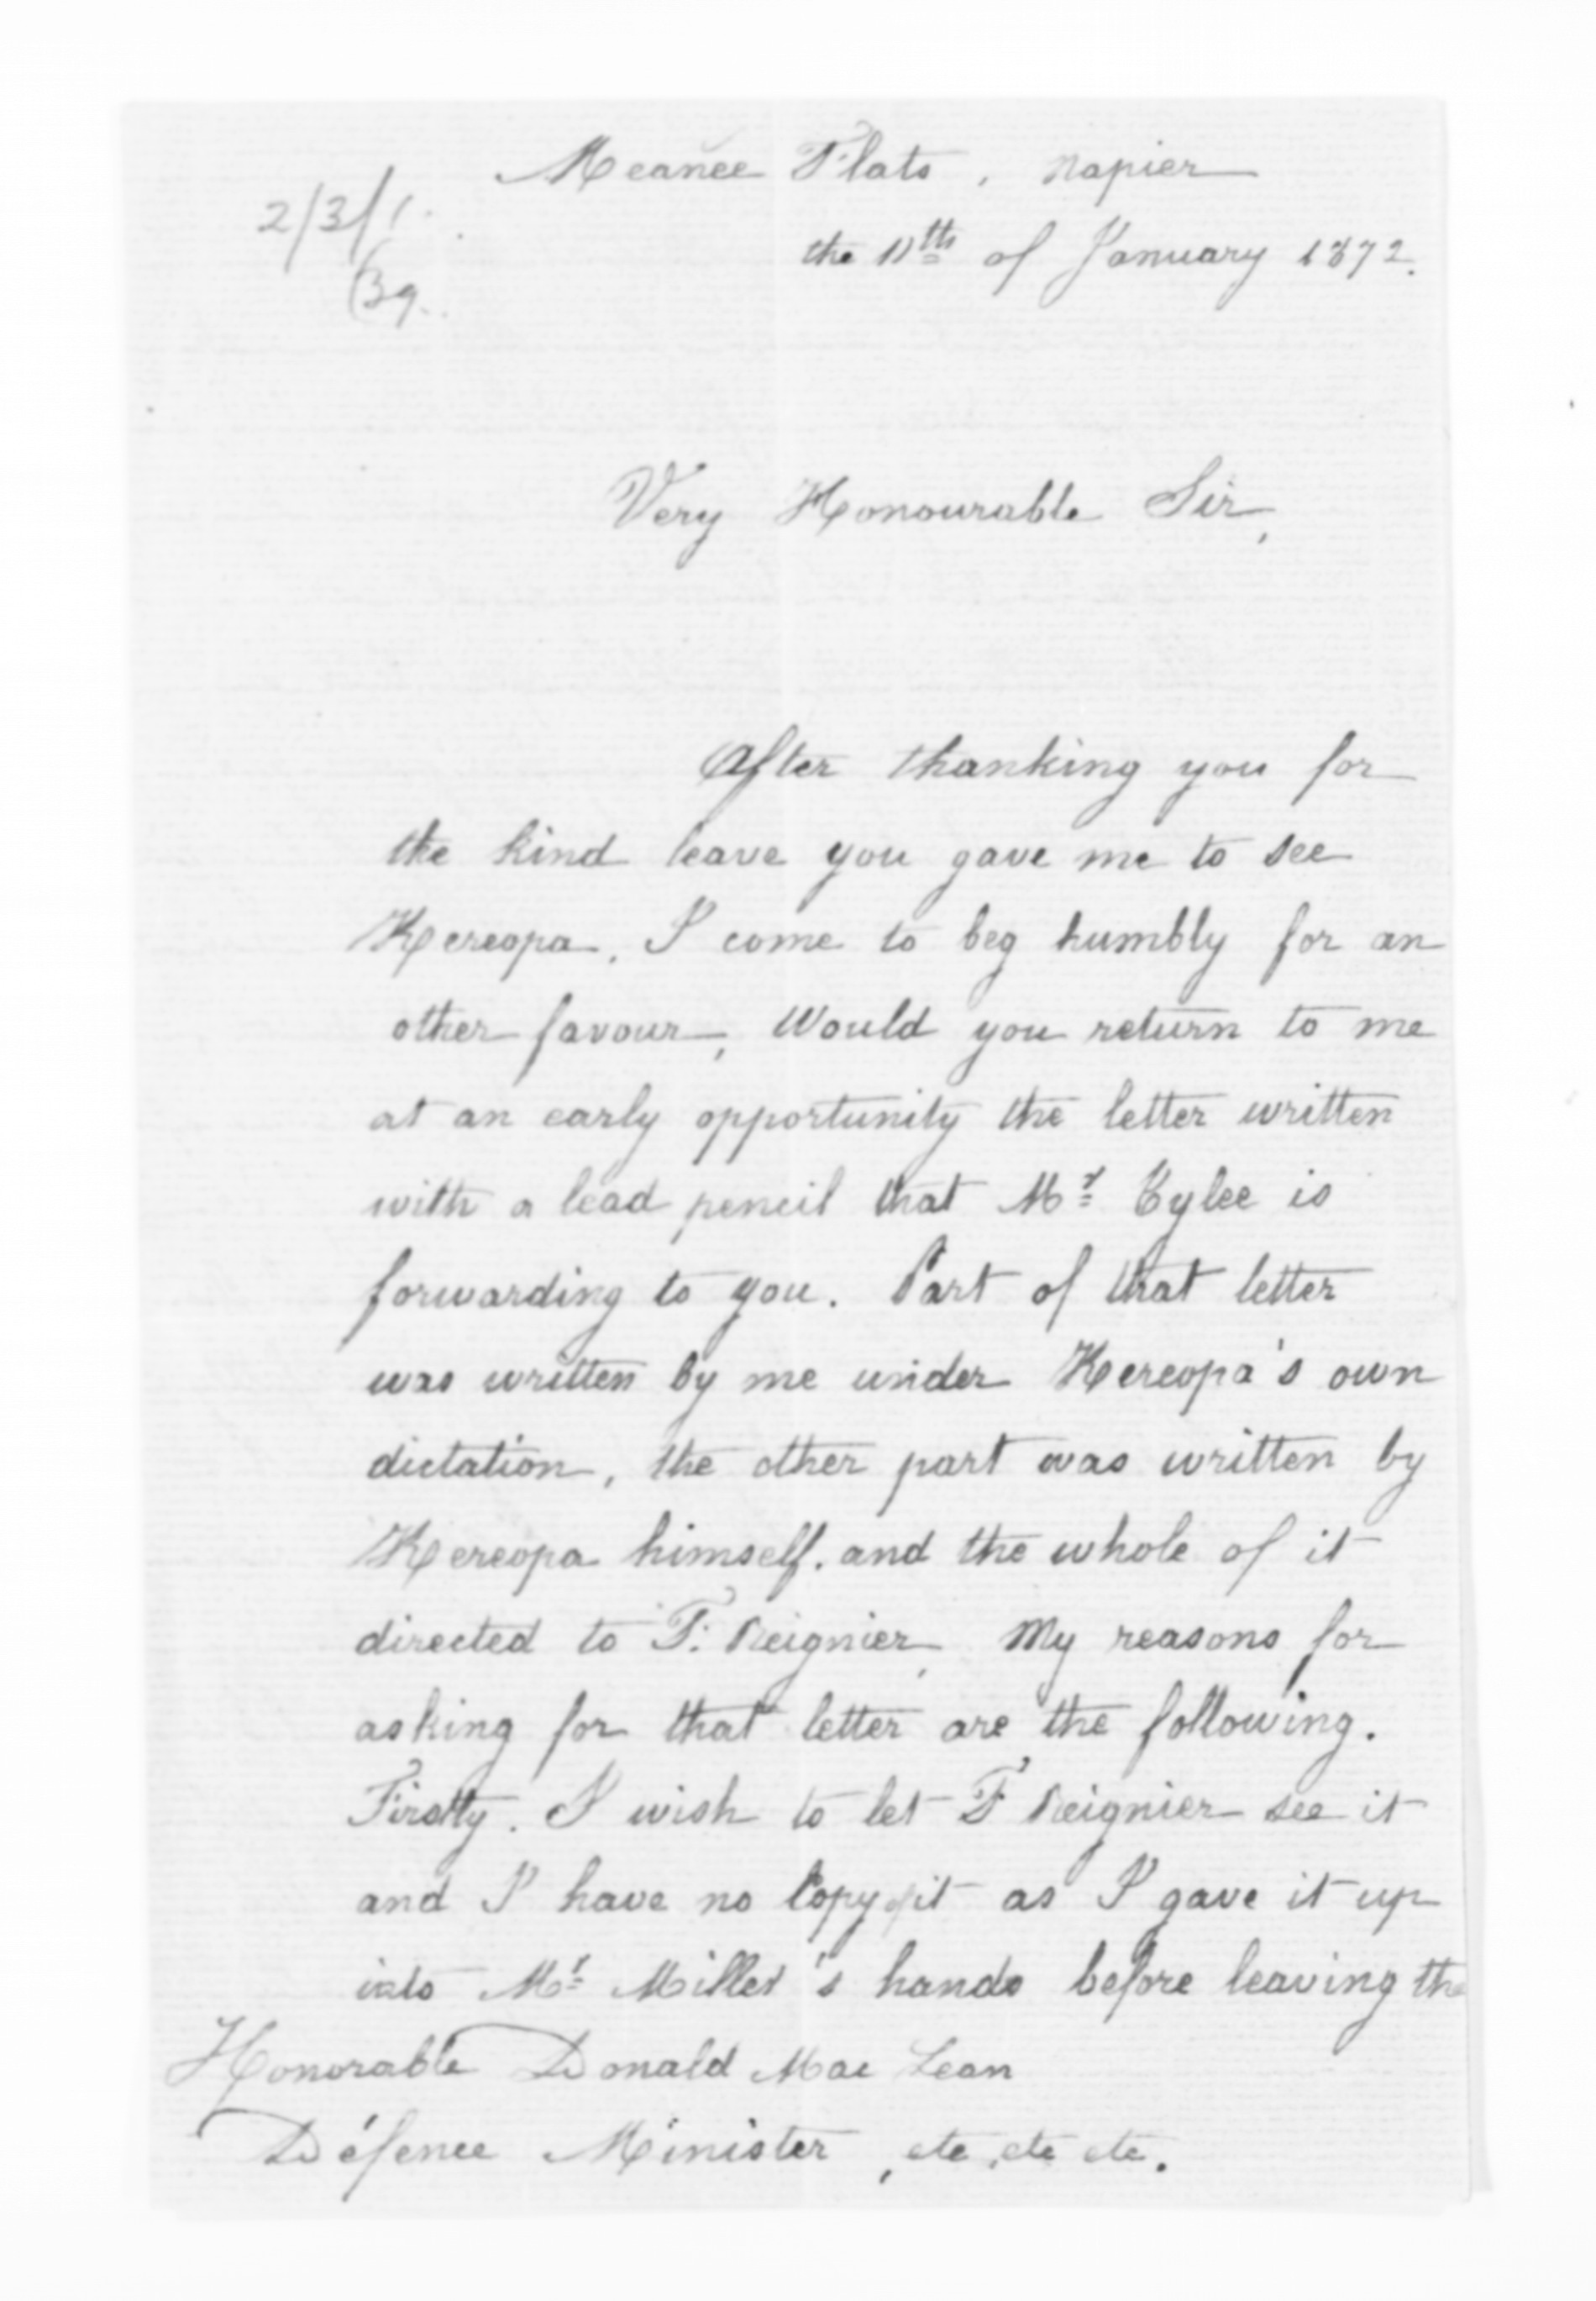 Meanee Flats, Napier
2/3/1.
the 11th of January 1872.
39.
Very Honourable Sir,
After thanking you for
the kind leave you gave me to see
Kereopa, I come to beg humbly for an
other favour, Would you return to me
at an early opportunity the letter written
with a lead pencil that Mr is
forwarding to you. Part of that letter
was written by me under Kereopa's own
dictation, the other part was written by
Kereopa himself. and the whole of it
directed to F. Reignier, My reasons for
asking for that letter are the following.
Firstly. I wish to let F Reignier see it
and I have no Copy of it as I gave it up
into Mr Miller's hands before leaving the
Honorable Donald Mac Lean
Défence Minister, etc, etc etc.